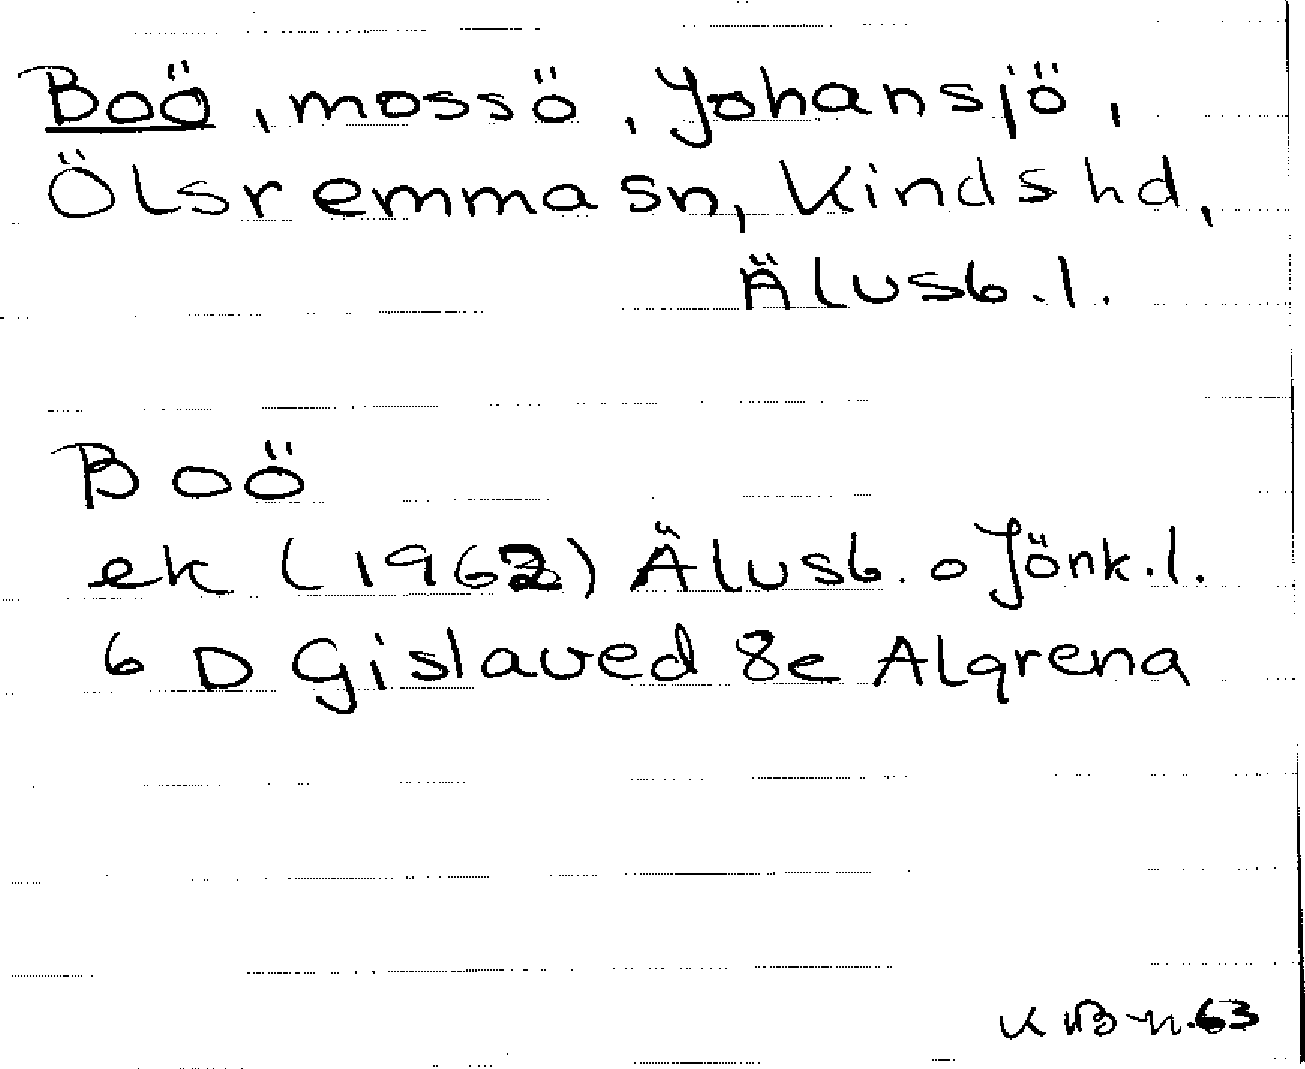 Boö, mossö, Johansjö,
Ölsremma sn, Kinds hd,
Älvsb. l.
Boö
ek (1962) Älvsb. o Jönk. l.
6 D Gislaved 8e Algrena
63